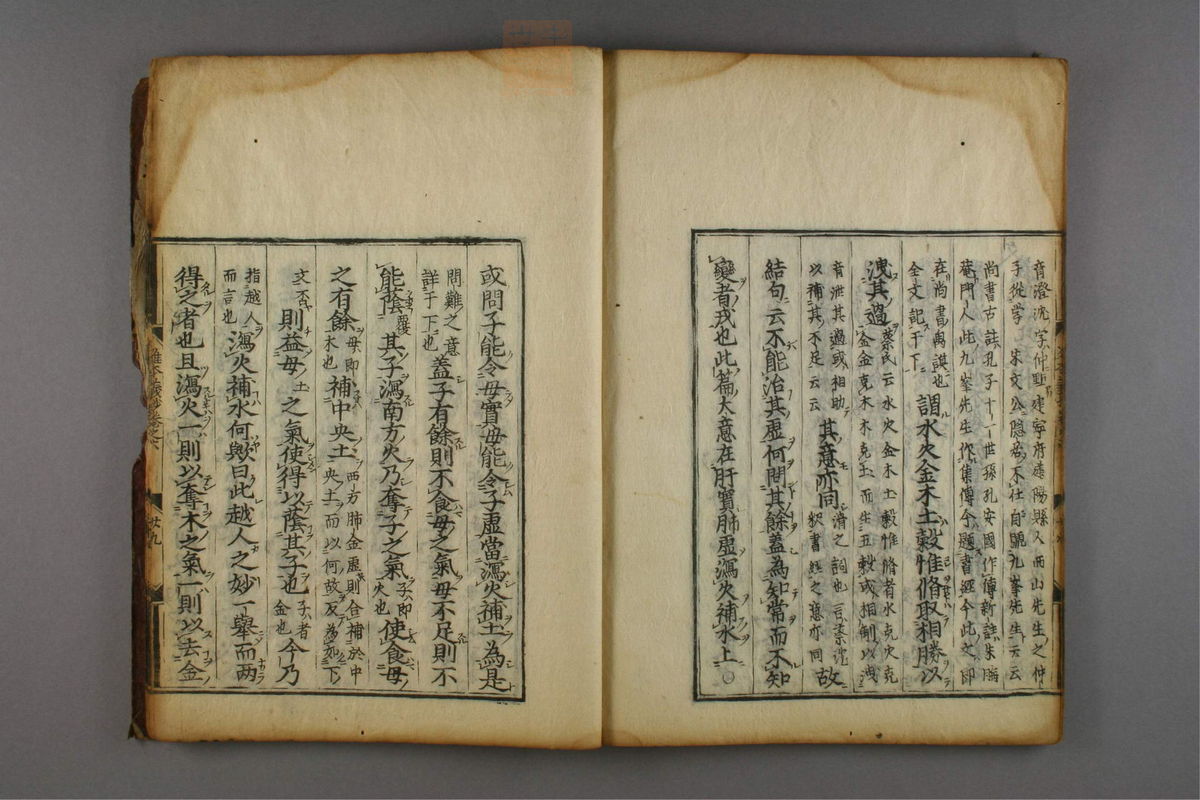 齊澄沈字仲默建寧府建陽縣人西山先生之仲
子從学朱文公隠居不仕自號九峯先生云云
尚書古註孔子十一世孫孔安國作傳新註朱晦
菴門人此九峯先生作集傳今題書經今此文即
在尚書禹謨也謂水火金木土穀惟脩取相勝以
全文記于下
洩其過蔡氏云水火金木土穀惟脩者水克火火克
金金克木木克土而生五穀或相制以洩
其過或相助
以補其不足云云其意亦同
釈書經之意亦同故
結句云不能治其虚何問其餘蓋為知常而不知
變者戒也此篇大意在肝實肺虚瀉火補水上○
或問子能令母實母能令子虚當瀉火補土為是
問難之意
詳于下也蓋子有餘則不食母之氣母不足則不
能蔭覆其子瀉南方火乃奪子之氣子即
火也使食母
之有餘母即
木也補中央土西方肺金虚則合補於中
央土而以何故反為如下
文否則益母土之氣使得以蔭其子也子者
金也今乃
指越人
而言也瀉火補水何歟曰此越人之妙一舉而两
得之者也且瀉火一則以奪木之氣一則以去金
難
廿九